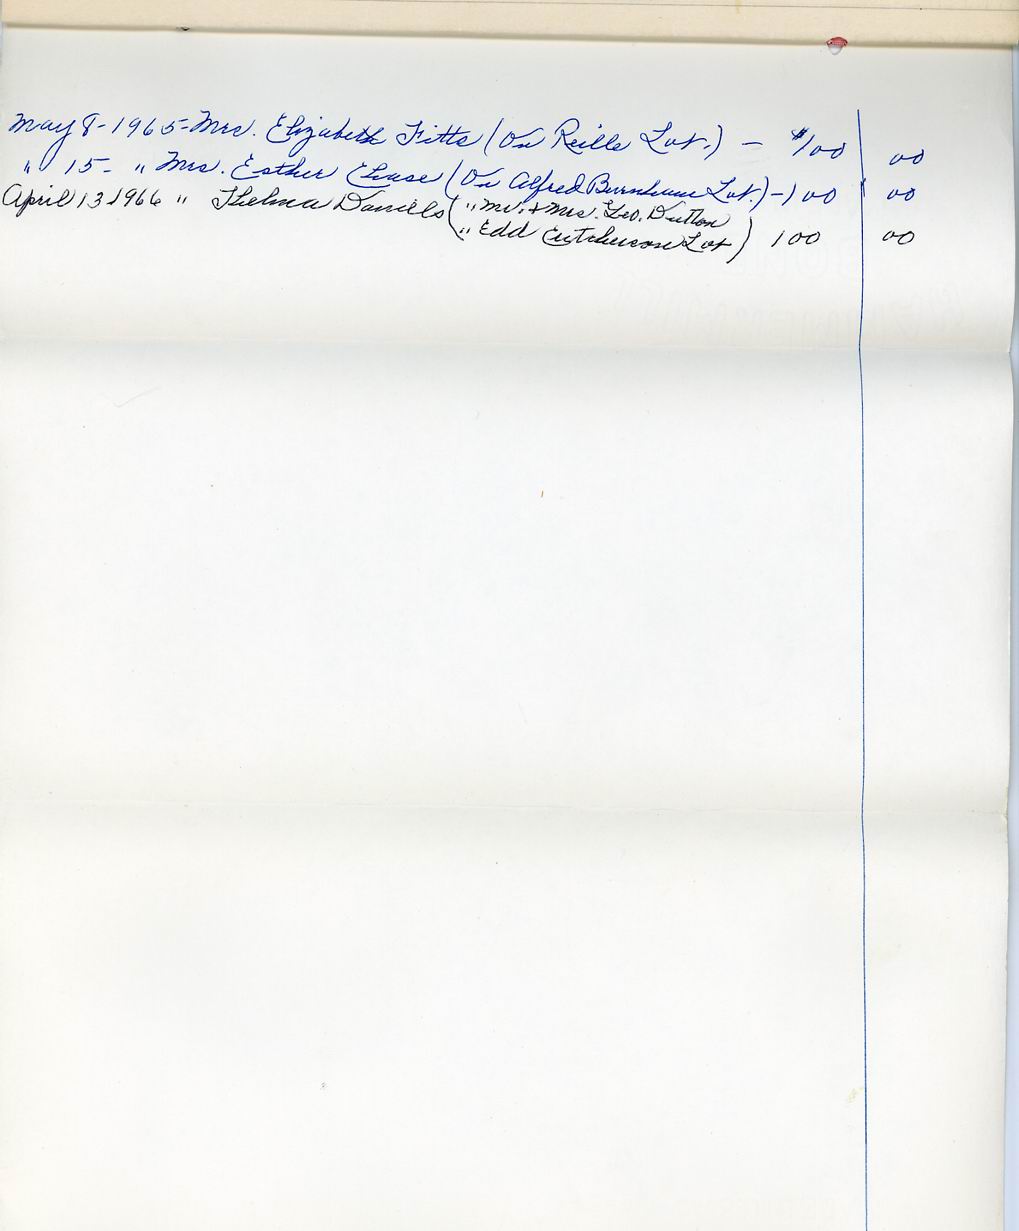 May 8-1965-Mrs. Elizabeth Fitts (On Reille Lot.) - $100 00
" 15- " Mrs. Esther Chase (On Alfred Burnham Lot.) - 100 00
April 13-1966 " Thelma Daniels ( " Mr. + Mrs. Geo. Dutton
" Edd Lot) 100 00